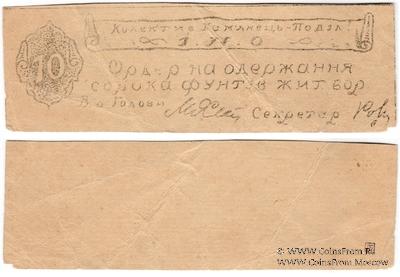 Колектив Камянець-Поділ.
І.Н.О.
10
Ордер на одержання
сорока фунтів жит. бор
В. о. Голови Секретар
© WWW.CoinsFrom.RU
WWW.CoinsFrom.Moscow